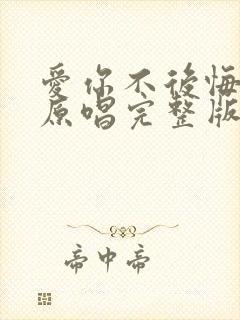 愛你不後悔
原唱完整版
帝中帝